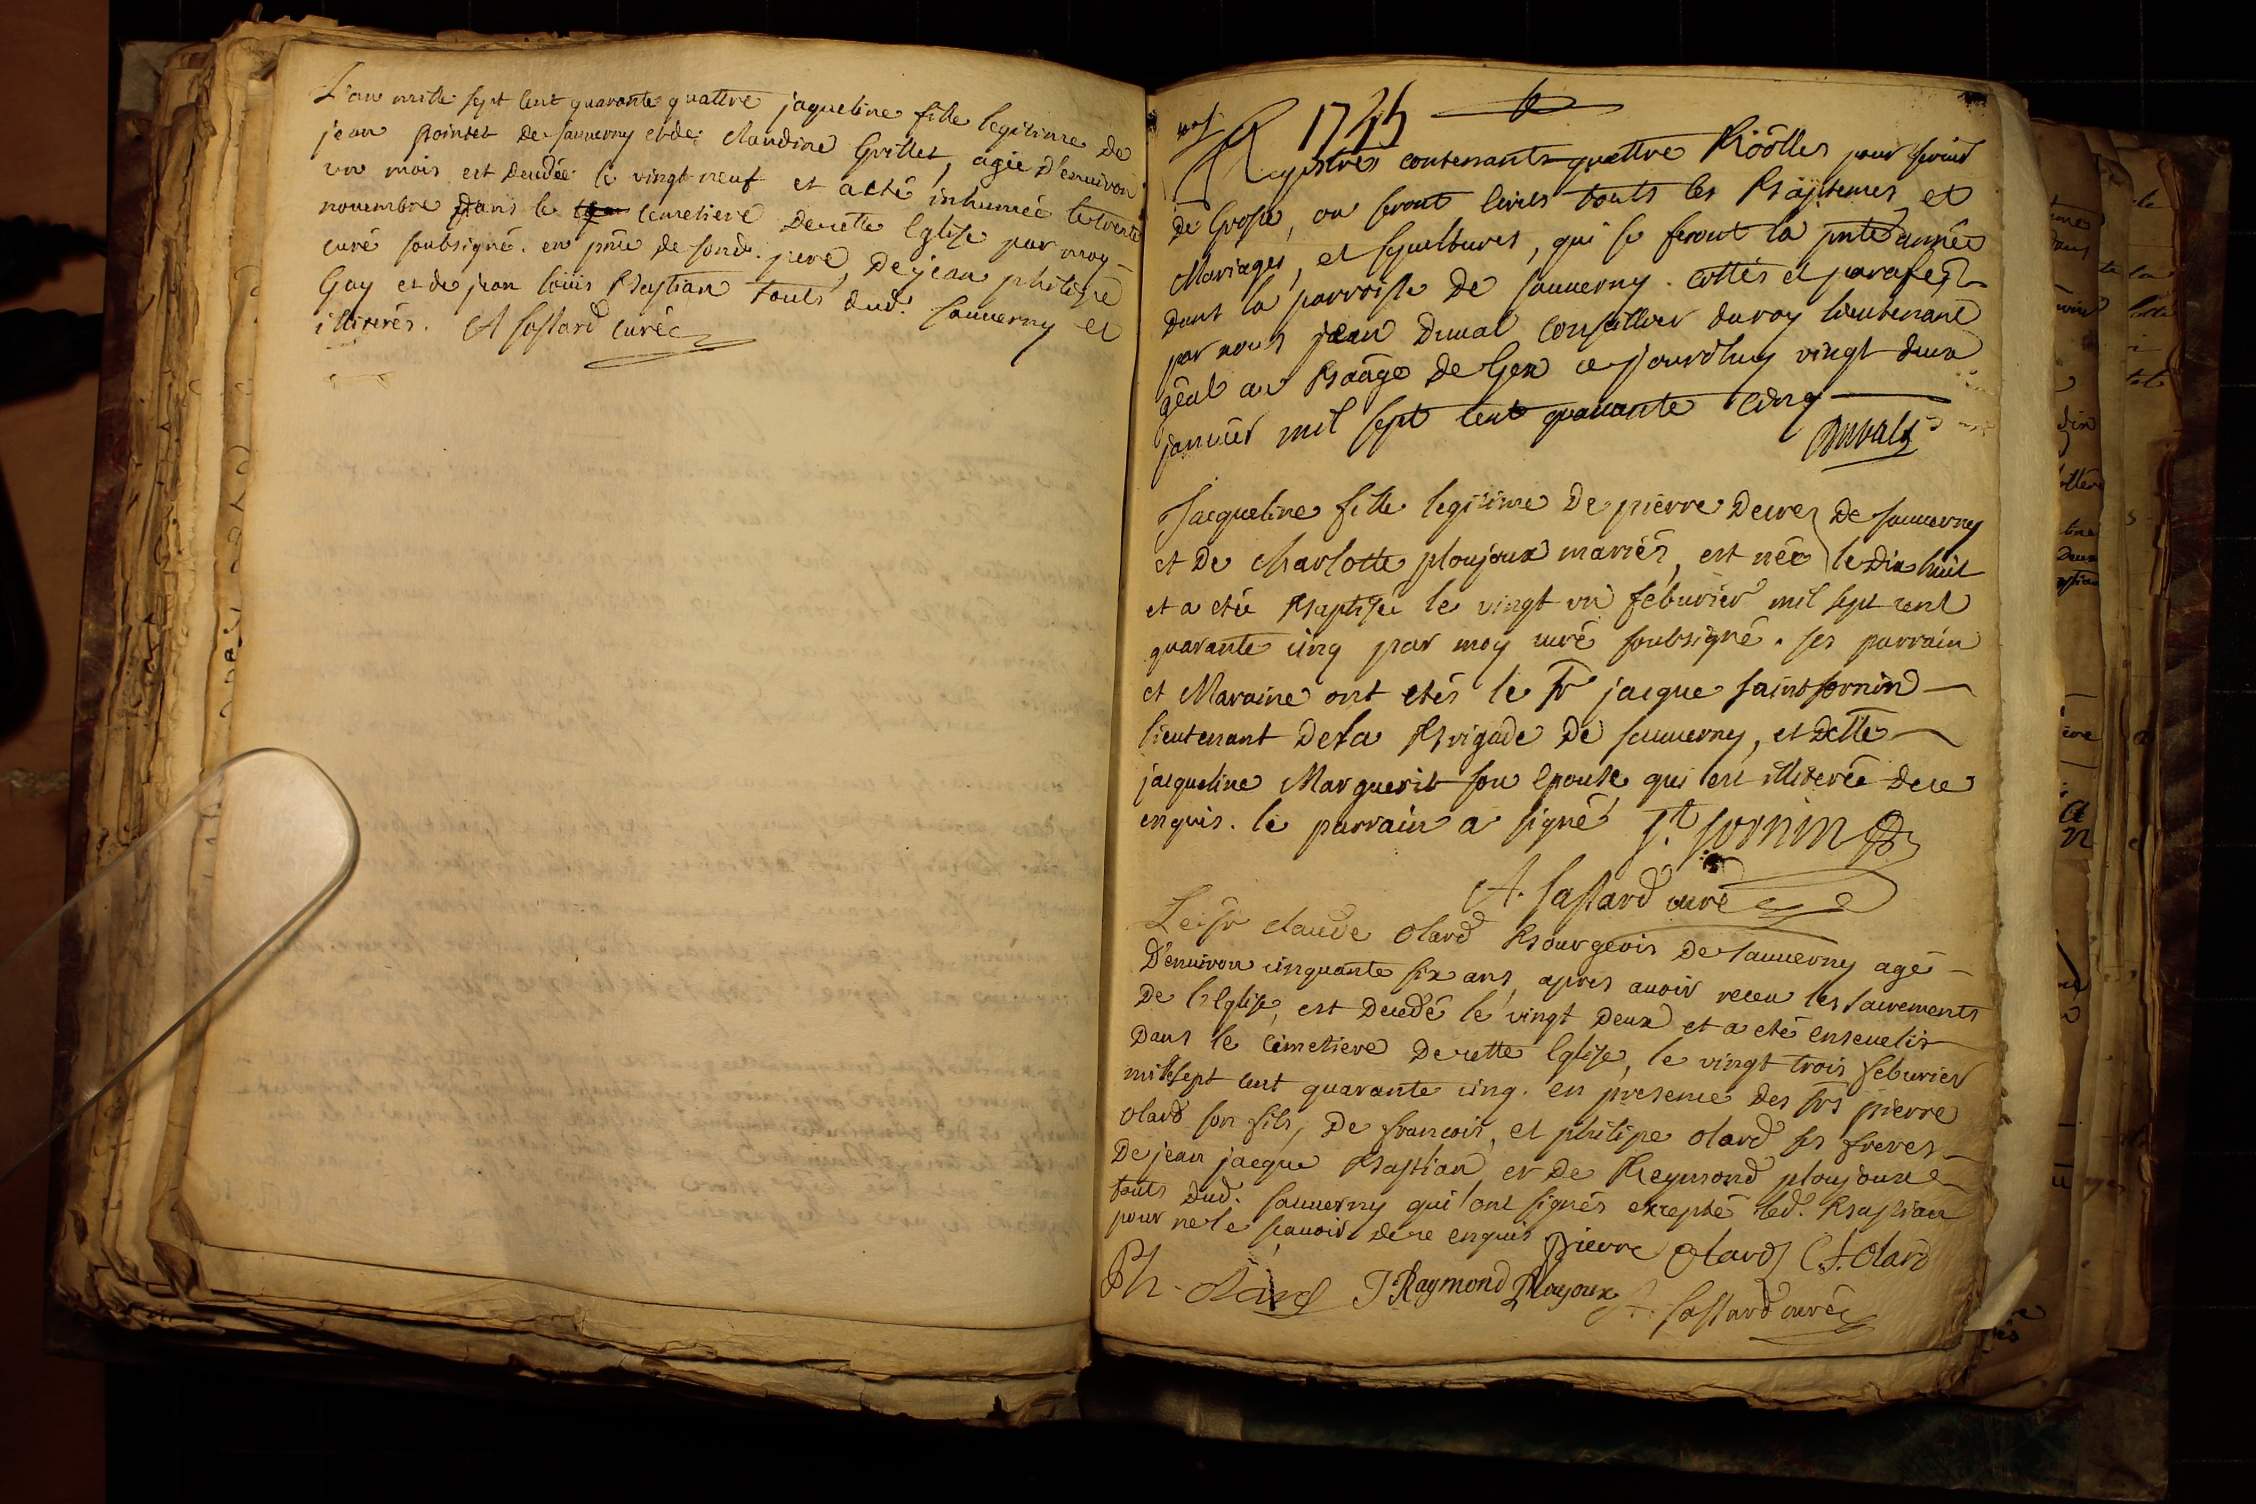 L'an mille sept cent quarante quattre jaqueline fille legitime de
jean pointet de sauuerny et de Claudine Grillet, agée d'enuiron
un mois est decedée le vingt neuf et a eté inhumée le trente
nouembre dans le cemetiere de cette Eglise par moy
curé soubsigné. en pnce de sond. pere, de jean philipe
Gay et de jean loüis Bastian touts dud. sauuerny et
illiterés. A Castard curé
1745
Registres contenants quattre Röolles pour seruir
de Grosse, ou seront ecrits touts les Baptemes et
Mariages, et sepultures, qui se feront la pnte année
dans la parroisse de sauuerny. cottés et parafés
par nous jean Duual Conseiller du roy lieutenant
gêral au Baäge de Gex ce jourdhuy vingt deux
januier mil sept cent quarante Cinq
Duval
Jacqueline fille legitime de pierre Decre de sauuerny
et de Charlotte ploujoux mariés, est née le dix huit
et a eté Baptisée le vingt un feburier mil sept cent
quarante cinq par moy curé soubsigné. ses parrain
et Maraine ont etés le Sr jacque saint sornin
lieutenant de la Brigade de sauuerny, et Dlle
jacqueline Marguerit son epouse qui est illiterée de ce
enquis. le parrain a signé St. sornin
A. Castard curé
Le Sr claude olard Bourgeois de sauuerny agé
d'enuiron cinquante six ans, apres auoir receu les sacrements
de l'Eglise, est decedé le vingt deux et a eté enseuelis
dans le Cimetiere de cette Eglise, le vingt trois feburier
mille sept cent quarante cinq. en presence des Srs pierre
olard son fils, de francois, et philipe olard ses freres
de jean jacque Bastian et de Reymond ploujoux
touts dud. sauuerny qui ont signés excepté led. Bastian
pour ne le scauoir de ce enquis pierre olard f. olard
Ph. olard J Raymond Ploujoux A. Castard curé